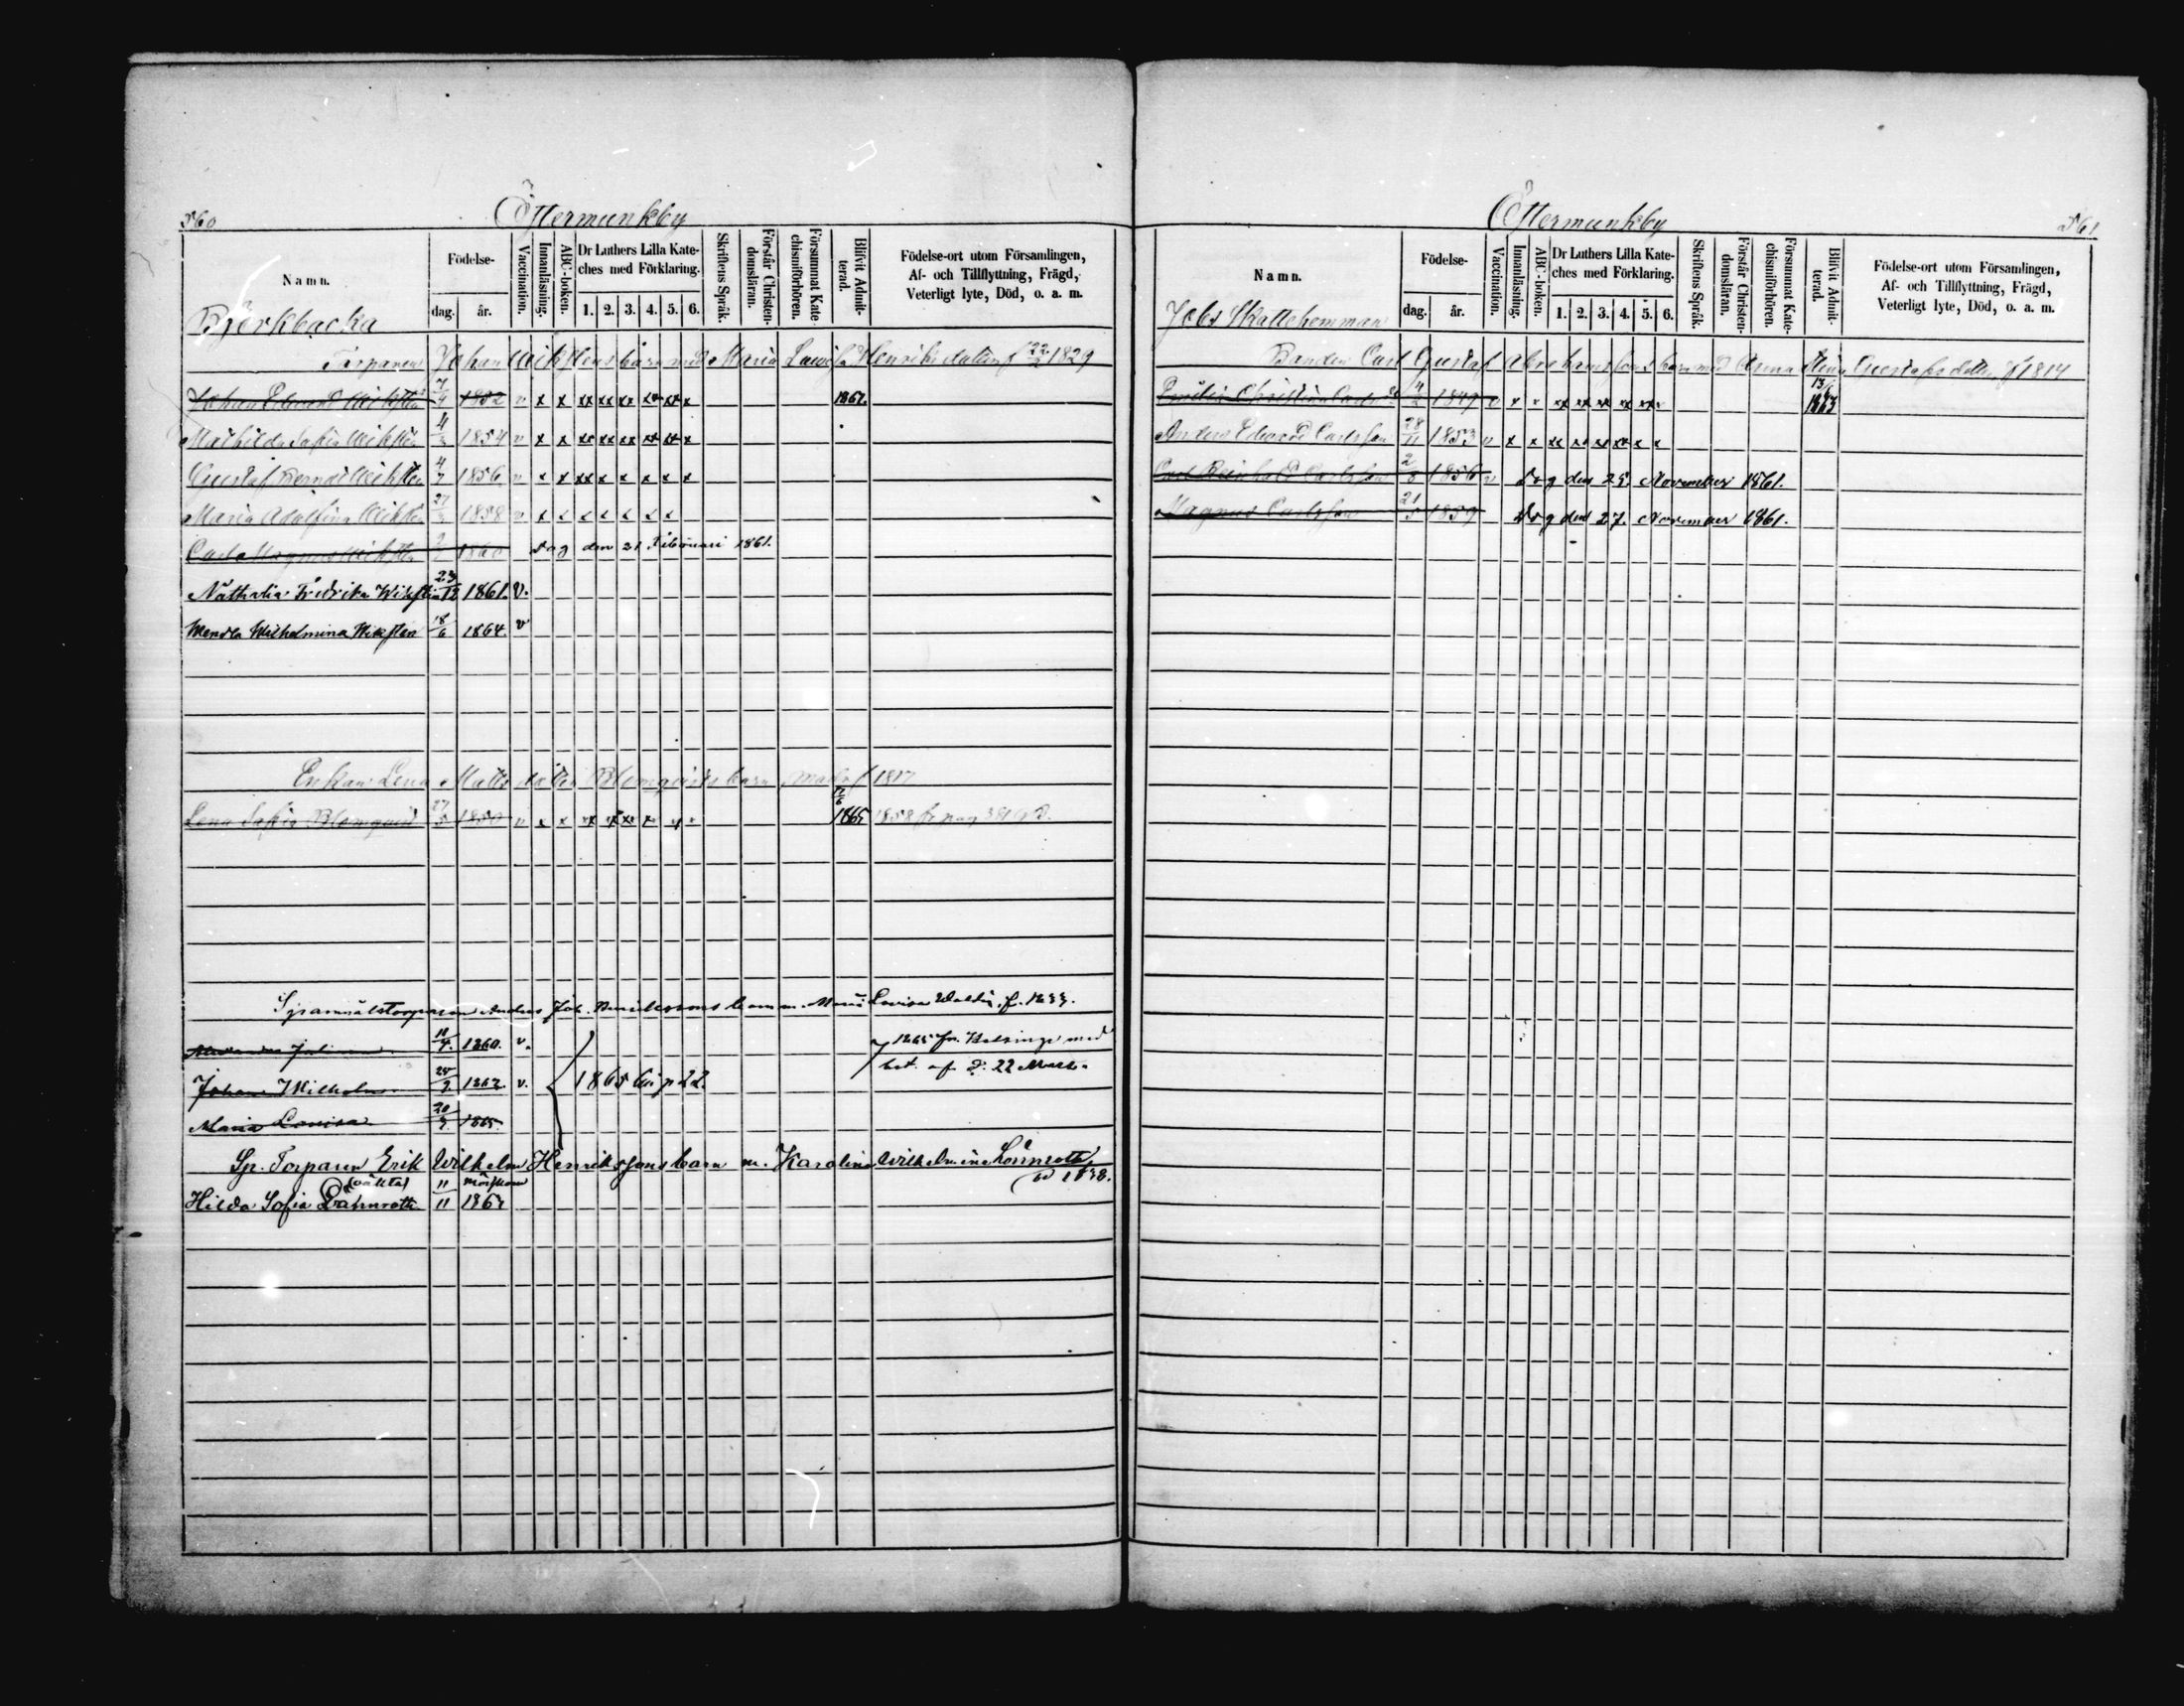 560
Östermunkby
Namn.
Födelse-
dag.
år.
Vaccination.
Innanläsning.
ABC-boken.
Dr Luthers Lilla Kate-
ches med Förklaring.
1. 2. 3. 4. 5. 6.
Skriftens Språk.
Förstår Christen-
domsläran.
Försummat Kate-
chismiförhören.
Blifvit Admit-
terad.
Födelse-ort utom Församlingen,
Af- och Tillflyttning, Frägd,
Veterligt lyte, Död, o. a. m.
Björkbacka
Torparen Johan Wiksténs barn med Maria Lovisa Henriksdotter f 22/2 1829
Johan Edvard Wikstén 7/4 1852 v x x xx xx xx xx xx x 1867.
Mathilda Sofia Wikstén 4/3 1854 v x x xx xx xx xx xx x
Gustaf Berndt Wikstén 4/7 1856 v x x xx x x x x x
Maria Adolfina Wikstén 27/3 1858 v x x x x x x x
Carl Magnus Wikstén 1860 Dog den 21 Februari 1861.
Nathalia Fredrika Wikstén 23/12 1861. v.
Wendla Wilhelmina Wiksten 18/6 1864. v
Enkan Lena Mattsdotter Blomqvists barn f 1817
Lena Sofia Blomqvist 27/5 1850 v x x xx xx xx x x x 1865 1858 fr pag
Joh. barn m. Maria Lovisa f. 1833.
11/4. 1860. v.
1865 fr. Helsinge med
bet. af d. 22 Mars.
Johan Wilhelm 25/9 1862. v. 1865 22.
Maria Lovisa 20/3 1865.
Sp. Torparen Erik Wilhelm Henrikssons barn m. Karolina Wilhelmina Lönnroth,
1838.
(oäkta) 11
Hilda Sofia Lönnroth 11 1867
561
Östermunkby
Namn.
Födelse-
dag.
år.
Vaccination.
Innanläsning.
ABC-boken.
Dr Luthers Lilla Kate-
ches med Förklaring.
1. 2. 3. 4. 5. 6.
Skriftens Språk.
Förstår Christen-
domsläran.
Försummat Kate-
chismiförhören.
Blifvit Admit-
terad.
Födelse-ort utom Församlingen,
Af- och Tillflyttning, Frägd,
Veterligt lyte, Död, o. a. m.
Jobs Skattehemman
Bonden Carl Gustaf Abrahamssons barn med Anna Stina Gustafsdotter f 1814
Emilia Christina Carlsd 4/2 1847 v x x xx xx xx xx xx x 1863
Anders Edvard Carlsson 28/11 1853 v x x xx xx xx xx x x
Carl Reinhold Carlsson 2/8 1856 v Dog den 25 November 1861.
Magnus Carlsson 21/5 1859 Dog den 27. November 1861.